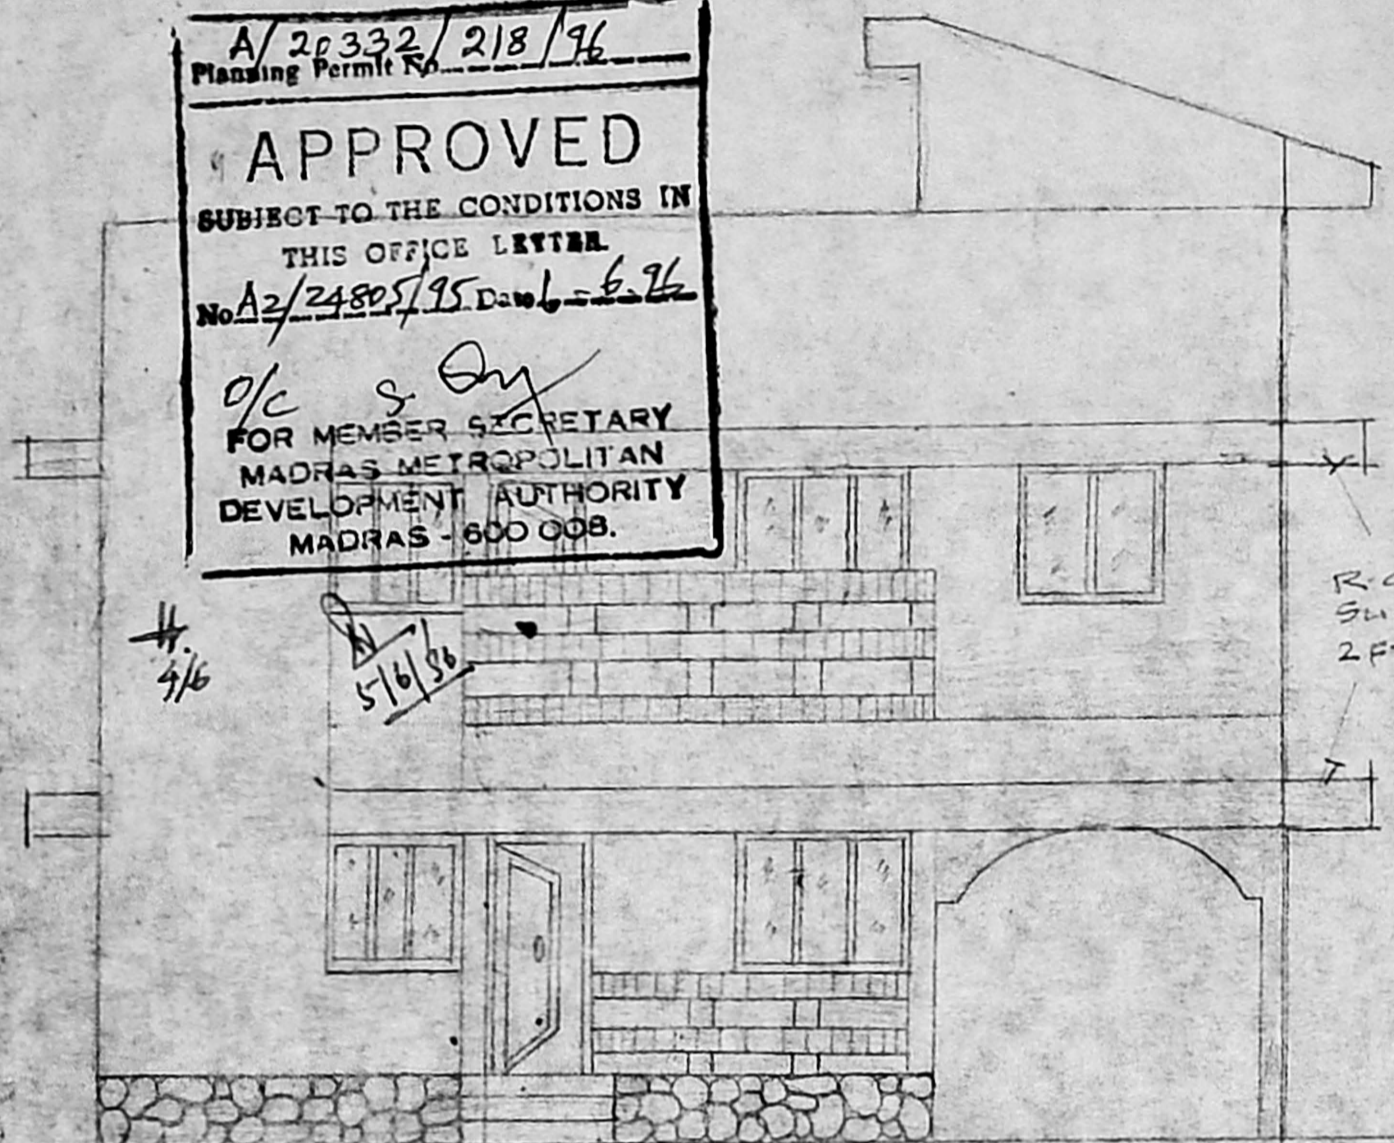 A/20332/218/96
Planning Permit No.
APPROVED
SUBJECT TO THE CONDITIONS IN
THIS OFFICE LETTER
No A2/24805/95 Date 6-6.96
O/C S.
FOR MEMBER SECRETARY
MADRAS METROPOLITAN
DEVELOPMENT AUTHORITY
MADRAS - 600 008.
4/6
5/6/96
2 F